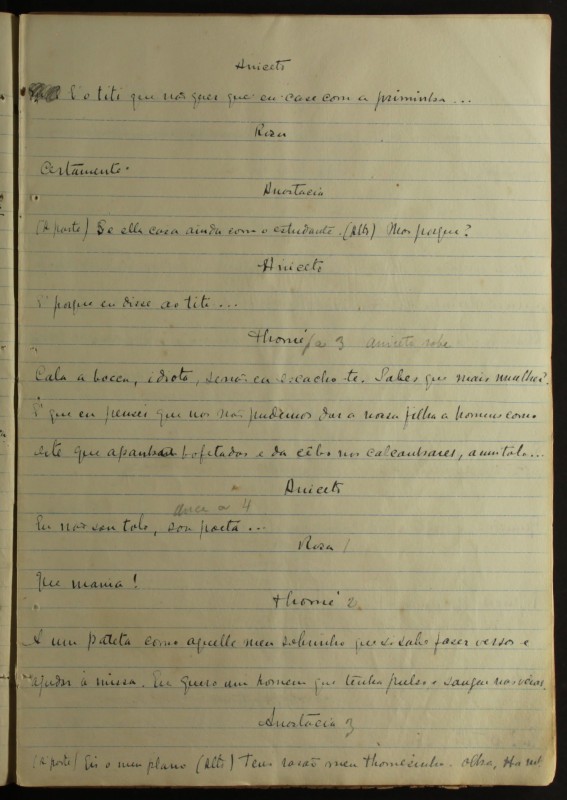 Aniceto
É o titi que não quer que eu case com a priminha...
Rosa
Certamente.
Anastacia
(Á parte) Se ella casa ainda com o estudante. (Alto) Mas porque?
Aniceto
É porque eu disse ao titi...
Thomé a 3 aniceto sobe
Cala a bocca, idiota, senão eu escacho-te. Sabes que mais mulher?
É que eu pensei que nós não podemos dar a nossa filha a homens como
este que apanha bofetadas e da cêbo nos calcanhares, a um tolo...
Aniceto
desce a 4
Eu não sou tolo, sou poeta...
Rosa 1
Que mania!
Thomé 2
A um pateta como aquelle meu sobrinho que só sabe fazer versos e
ajudar á missa. Eu quero um homem que tenha pulso e sangue nas veias.
Anastacia 3
(Á parte) Eis o meu plano (Alto) Tens rasão meu Thomésinho. Olha,